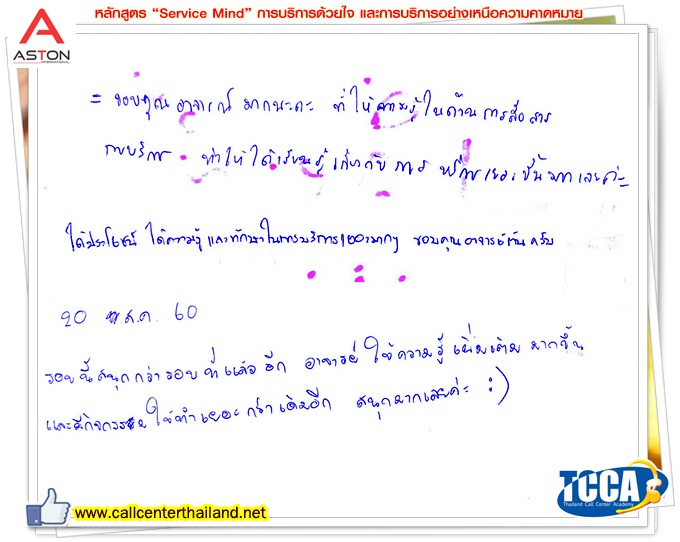 หลักสูตร “Service Mind” การบริการด้วยใจ และการบริการอย่างเหนือความคาดหมาย
ASTON
INTERNATIONAL
= ขอบคุณ อาจารย์ มากนะคะ ที่ให้ความรู้ในด้านการสื่อสาร
การบริการ ทำให้ได้เรียนรู้เกี่ยวกับการ บริการเยอะขึ้นมากเลยค่ะ
ได้ประโยชน์ ได้ความรู้ และทักษะในการบริการเยอะมากๆ ขอบคุณอาจารย์ต้นครับ
20 ส.ค. 60
รอบนี้สนุกกว่ารอบที่แล้วอีก อาจารย์ ให้ความรู้ เพิ่มเติม มากขึ้น
และมีกิจกรรม ให้ทำเยอะกว่าเดิมอีก สนุกมากเลยค่ะ :)
www.callcenterthailand.net
TCCA
Thailand Call Center Academy